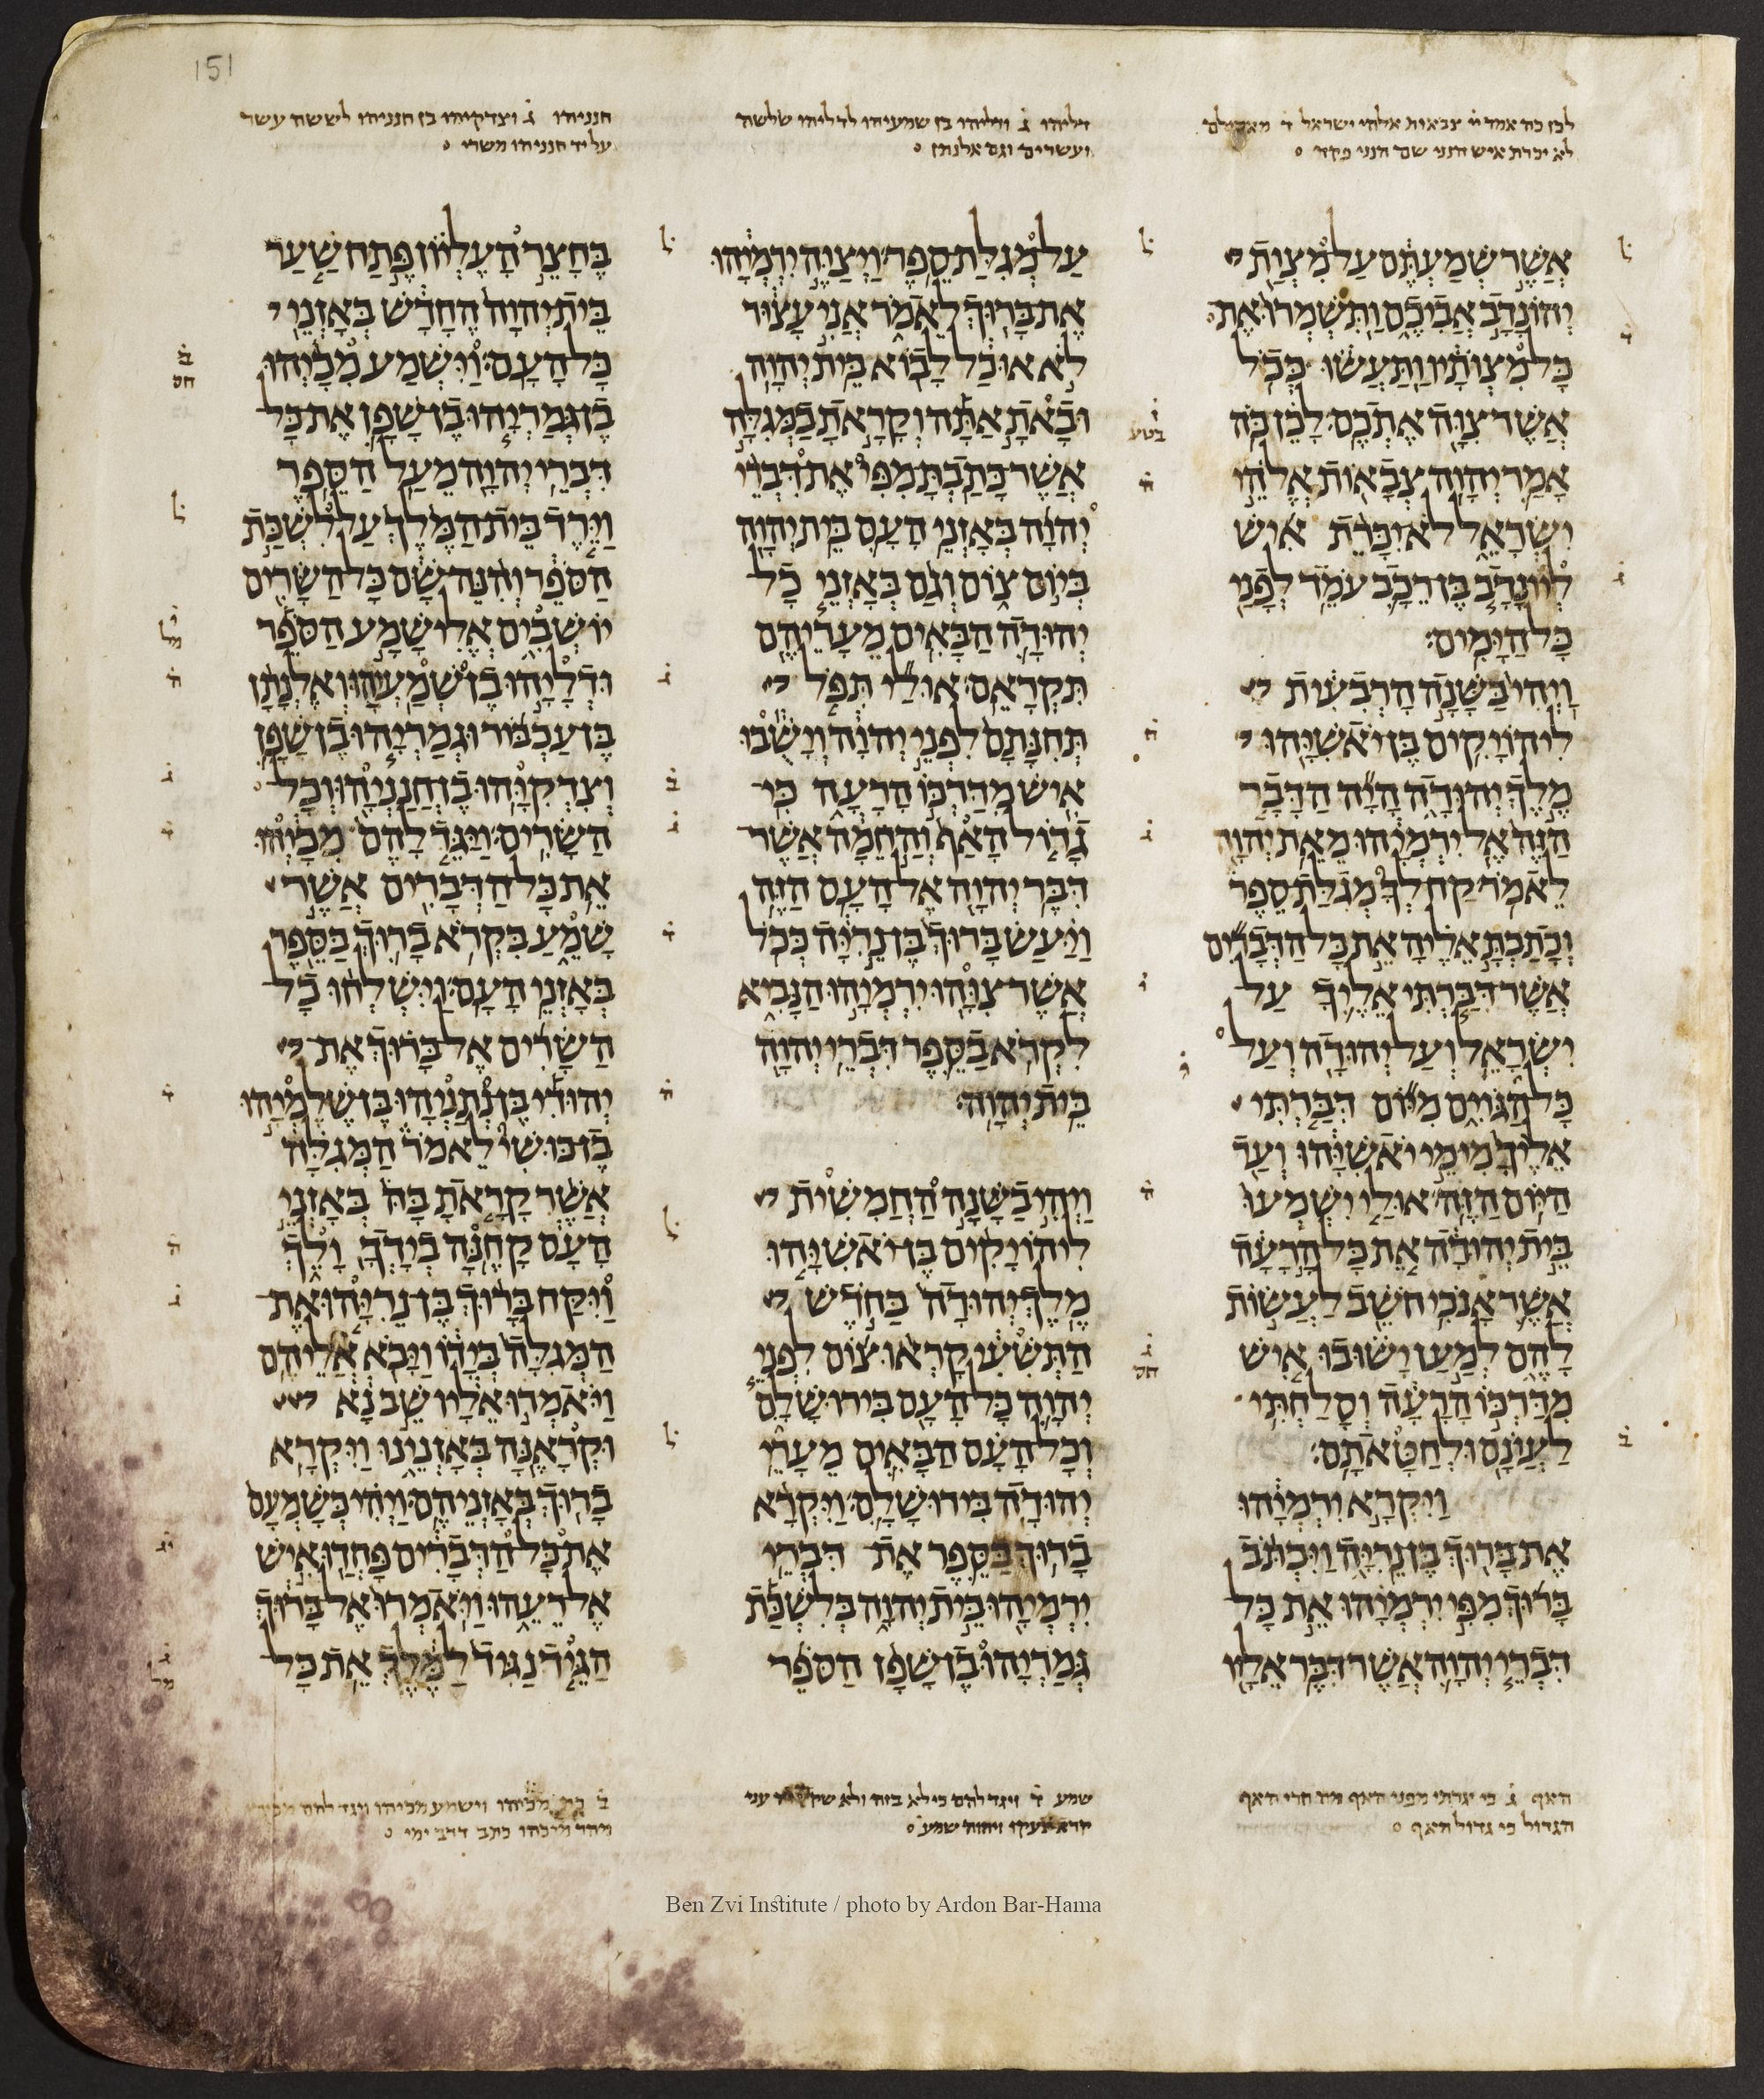 151
לכן כה אמר יי צבאות אלהי ישראל ד
לא יכרת איש הנני שם הנני פקד
אֲשֶׁר שְׁמַעְתֶּם עַל מִצְוַת
יְהוֹנָדָב אֲבִיכֶם וַתִּשְׁמְרוּ אֶת
כָּל מִצְוֺתָיו וַתַּעֲשׂוּ כְּכֹל
אֲשֶׁר צִוָּה אֶתְכֶם׃ לָכֵן כֹּה
אָמַר יְהוָה צְבָאוֹת אֱלֹהֵי
יִשְׂרָאֵל לֹא יִכָּרֵת אִישׁ
לְיוֹנָדָב בֶּן רֵכָב עֹמֵד לְפָנַי
כָּל הַיָּמִים׃
וַיְהִי בַּשָּׁנָה הָרְבִעִית
לִיהוֹיָקִים בֶּן יֹאשִׁיָּהוּ
מֶלֶךְ יְהוּדָה הָיָה הַדָּבָר
הַזֶּה אֶל יִרְמְיָהוּ מֵאֵת יְהוָה
לֵאמֹר׃ קַח לְךָ מְגִלַּת סֵפֶר
וְכָתַבְתָּ אֵלֶיהָ אֵת כָּל הַדְּבָרִים
אֲשֶׁר דִּבַּרְתִּי אֵלֶיךָ עַל
יִשְׂרָאֵל וְעַל יְהוּדָה וְעַל
כָּל הַגּוֹיִם מִיּוֹם דִּבַּרְתִּי
אֵלֶיךָ מִימֵי יֹאשִׁיָּהוּ וְעַד
הַיּוֹם הַזֶּה׃ אוּלַי יִשְׁמְעוּ
בֵּית יְהוּדָה אֵת כָּל הָרָעָה
אֲשֶׁר אָנֹכִי חֹשֵׁב לַעֲשׂוֹת
לָהֶם לְמַעַן יָשׁוּבוּ אִישׁ
מִדַּרְכּוֹ הָרָעָה וְסָלַחְתִּי
לַעֲוֺנָם וּלְחַטָּאתָם׃
וַיִּקְרָא יִרְמְיָהוּ
אֶת בָּרוּךְ בֶּן נֵרִיָּה וַיִּכְתֹּב
בָּרוּךְ מִפִּי יִרְמְיָהוּ אֵת כָּל
דִּבְרֵי יְהוָה אֲשֶׁר דִּבֶּר אֵלָיו
האף ג כי יגרתי מפני האף מה חרי האף
הגדול כי גדול האף
דליהו ג ודליהו בן שמעיהו לדליהו שלשה
ועשרים וגם אלנתן
עַל מְגִלַּת סֵפֶר׃ וַיְצַוֶּה יִרְמְיָהוּ
אֶת בָּרוּךְ לֵאמֹר אֲנִי עָצוּר
לֹא אוּכַל לָבוֹא בֵּית יְהוָה׃
וּבָאתָ אַתָּה וְקָרָאתָ בַמְּגִלָּה
אֲשֶׁר כָּתַבְתָּ מִפִּי אֶת דִּבְרֵי
יְהוָה בְּאָזְנֵי הָעָם בֵּית יְהוָה
בְּיוֹם צוֹם וְגַם בְּאָזְנֵי כָל
יְהוּדָה הַבָּאִים מֵעָרֵיהֶם
תִּקְרָאֵם׃ אוּלַי תִּפֹּל
תְּחִנָּתָם לִפְנֵי יְהוָה וְיָשֻׁבוּ
אִישׁ מִדַּרְכּוֹ הָרָעָה כִּי
גָדוֹל הָאַף וְהַחֵמָה אֲשֶׁר
דִּבֶּר יְהוָה אֶל הָעָם הַזֶּה׃
וַיַּעַשׂ בָּרוּךְ בֶּן נֵרִיָּה כְּכֹל
אֲשֶׁר צִוָּהוּ יִרְמְיָהוּ הַנָּבִיא
לִקְרֹא בַסֵּפֶר דִּבְרֵי יְהוָה
בֵּית יְהוָה׃
וַיְהִי בַשָּׁנָה הַחֲמִשִׁית
לִיהוֹיָקִים בֶּן יֹאשִׁיָּהוּ
מֶלֶךְ יְהוּדָה בַּחֹדֶשׁ
הַתְּשִׁעִי קָרְאוּ צוֹם לִפְנֵי
יְהוָה כָּל הָעָם בִּירוּשָׁלָ͏ִם
וְכָל הָעָם הַבָּאִים מֵעָרֵי
יְהוּדָה בִּירוּשָׁלָ͏ִם׃ וַיִּקְרָא
בָרוּךְ בַּסֵּפֶר אֶת דִּבְרֵי
יִרְמְיָהוּ בֵּית יְהוָה בְּלִשְׁכַּת
גְּמַרְיָהוּ בֶן שָׁפָן הַסֹּפֵר
שמע ד ויגד להם כי לא בזה ולא שקץ ענו
צעקו ויהוה שמע
חנניהו ג וצדקיהו בן חנניהו לששה עשר
על יד חנניהו משרי
בֶּחָצֵר הָעֶלְיוֹן פֶּתַח שַׁעַר
בֵּית יְהוָה הֶחָדָשׁ בְּאָזְנֵי
כָּל הָעָם׃ וַיִּשְׁמַע מִכָיְהוּ
בֶן גְּמַרְיָהוּ בֶן שָׁפָן אֶת כָּל
דִּבְרֵי יְהוָה מֵעַל הַסֵּפֶר׃
וַיֵּרֶד בֵּית הַמֶּלֶךְ עַל לִשְׁכַּת
הַסֹּפֵר וְהִנֵּה שָׁם כָּל הַשָּׂרִים
יוֹשְׁבִים אֱלִישָׁמָע הַסֹּפֵר
וּדְלָיָהוּ בֶן שְׁמַעְיָהוּ וְאֶלְנָתָן
בֶּן עַכְבּוֹר וּגְמַרְיָהוּ בֶן שָׁפָן
וְצִדְקִיָּהוּ בֶן חֲנַנְיָהוּ וְכָל
הַשָּׂרִים׃ וַיַּגֵּד לָהֶם מִכָיְהוּ
אֵת כָּל הַדְּבָרִים אֲשֶׁר
שָׁמֵעַ בִּקְרֹא בָרוּךְ בַּסֵּפֶר
בְּאָזְנֵי הָעָם׃ וַיִּשְׁלְחוּ כָל
הַשָּׂרִים אֶל בָּרוּךְ אֶת
יְהוּדִי בֶּן נְתַנְיָהוּ בֶּן שֶׁלֶמְיָהוּ
בֶן כּוּשִׁי לֵאמֹר הַמְּגִלָּה
אֲשֶׁר קָרָאתָ בָּהּ בְּאָזְנֵי
הָעָם קָחֶנָּה בְיָדְךָ וָלֵךְ
וַיִּקַּח בָּרוּךְ בֶּן נֵרִיָּהוּ אֶת
הַמְּגִלָּה בְּיָדוֹ וַיָּבֹא אֲלֵיהֶם׃
וַיֹּאמְרוּ אֵלָיו שֵׁב נָא
וּקְרָאֶנָּה בְּאָזְנֵינוּ וַיִּקְרָא
בָרוּךְ בְּאָזְנֵיהֶם׃ וַיְהִי כְּשָׁמְעָם
אֶת כָּל הַדְּבָרִים פָּחֲדוּ אִישׁ
אֶל רֵעֵהוּ וַיֹּאמְרוּ אֶל בָּרוּךְ
הַגֵּיד נַגִּיד לַמֶּלֶךְ אֵת כָּל
מכיהו וישמע מכיהו ויגד להם
דדברי ימי
Ben Zvi Institute / photo by Ardon Bar-Hama